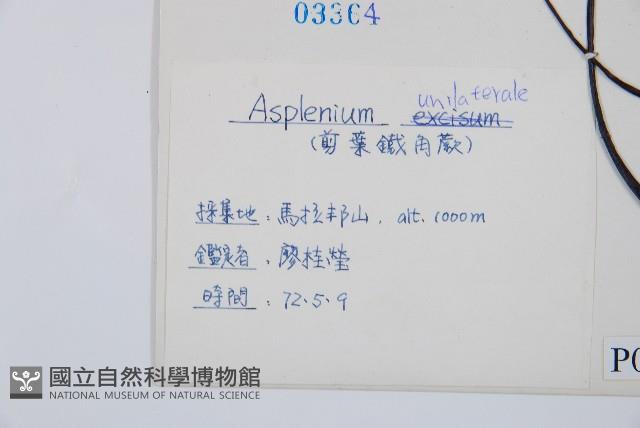 03364
Asplenium unilaterale
excisum
(剪葉鐵角蕨)
採集地：馬拉邦山. alt. 1000m
鑑定者：廖桂瑩
時間：72.5.9
國立自然科學博物館
NATIONAL MUSEUM OF NATURAL SCIENCE
P0